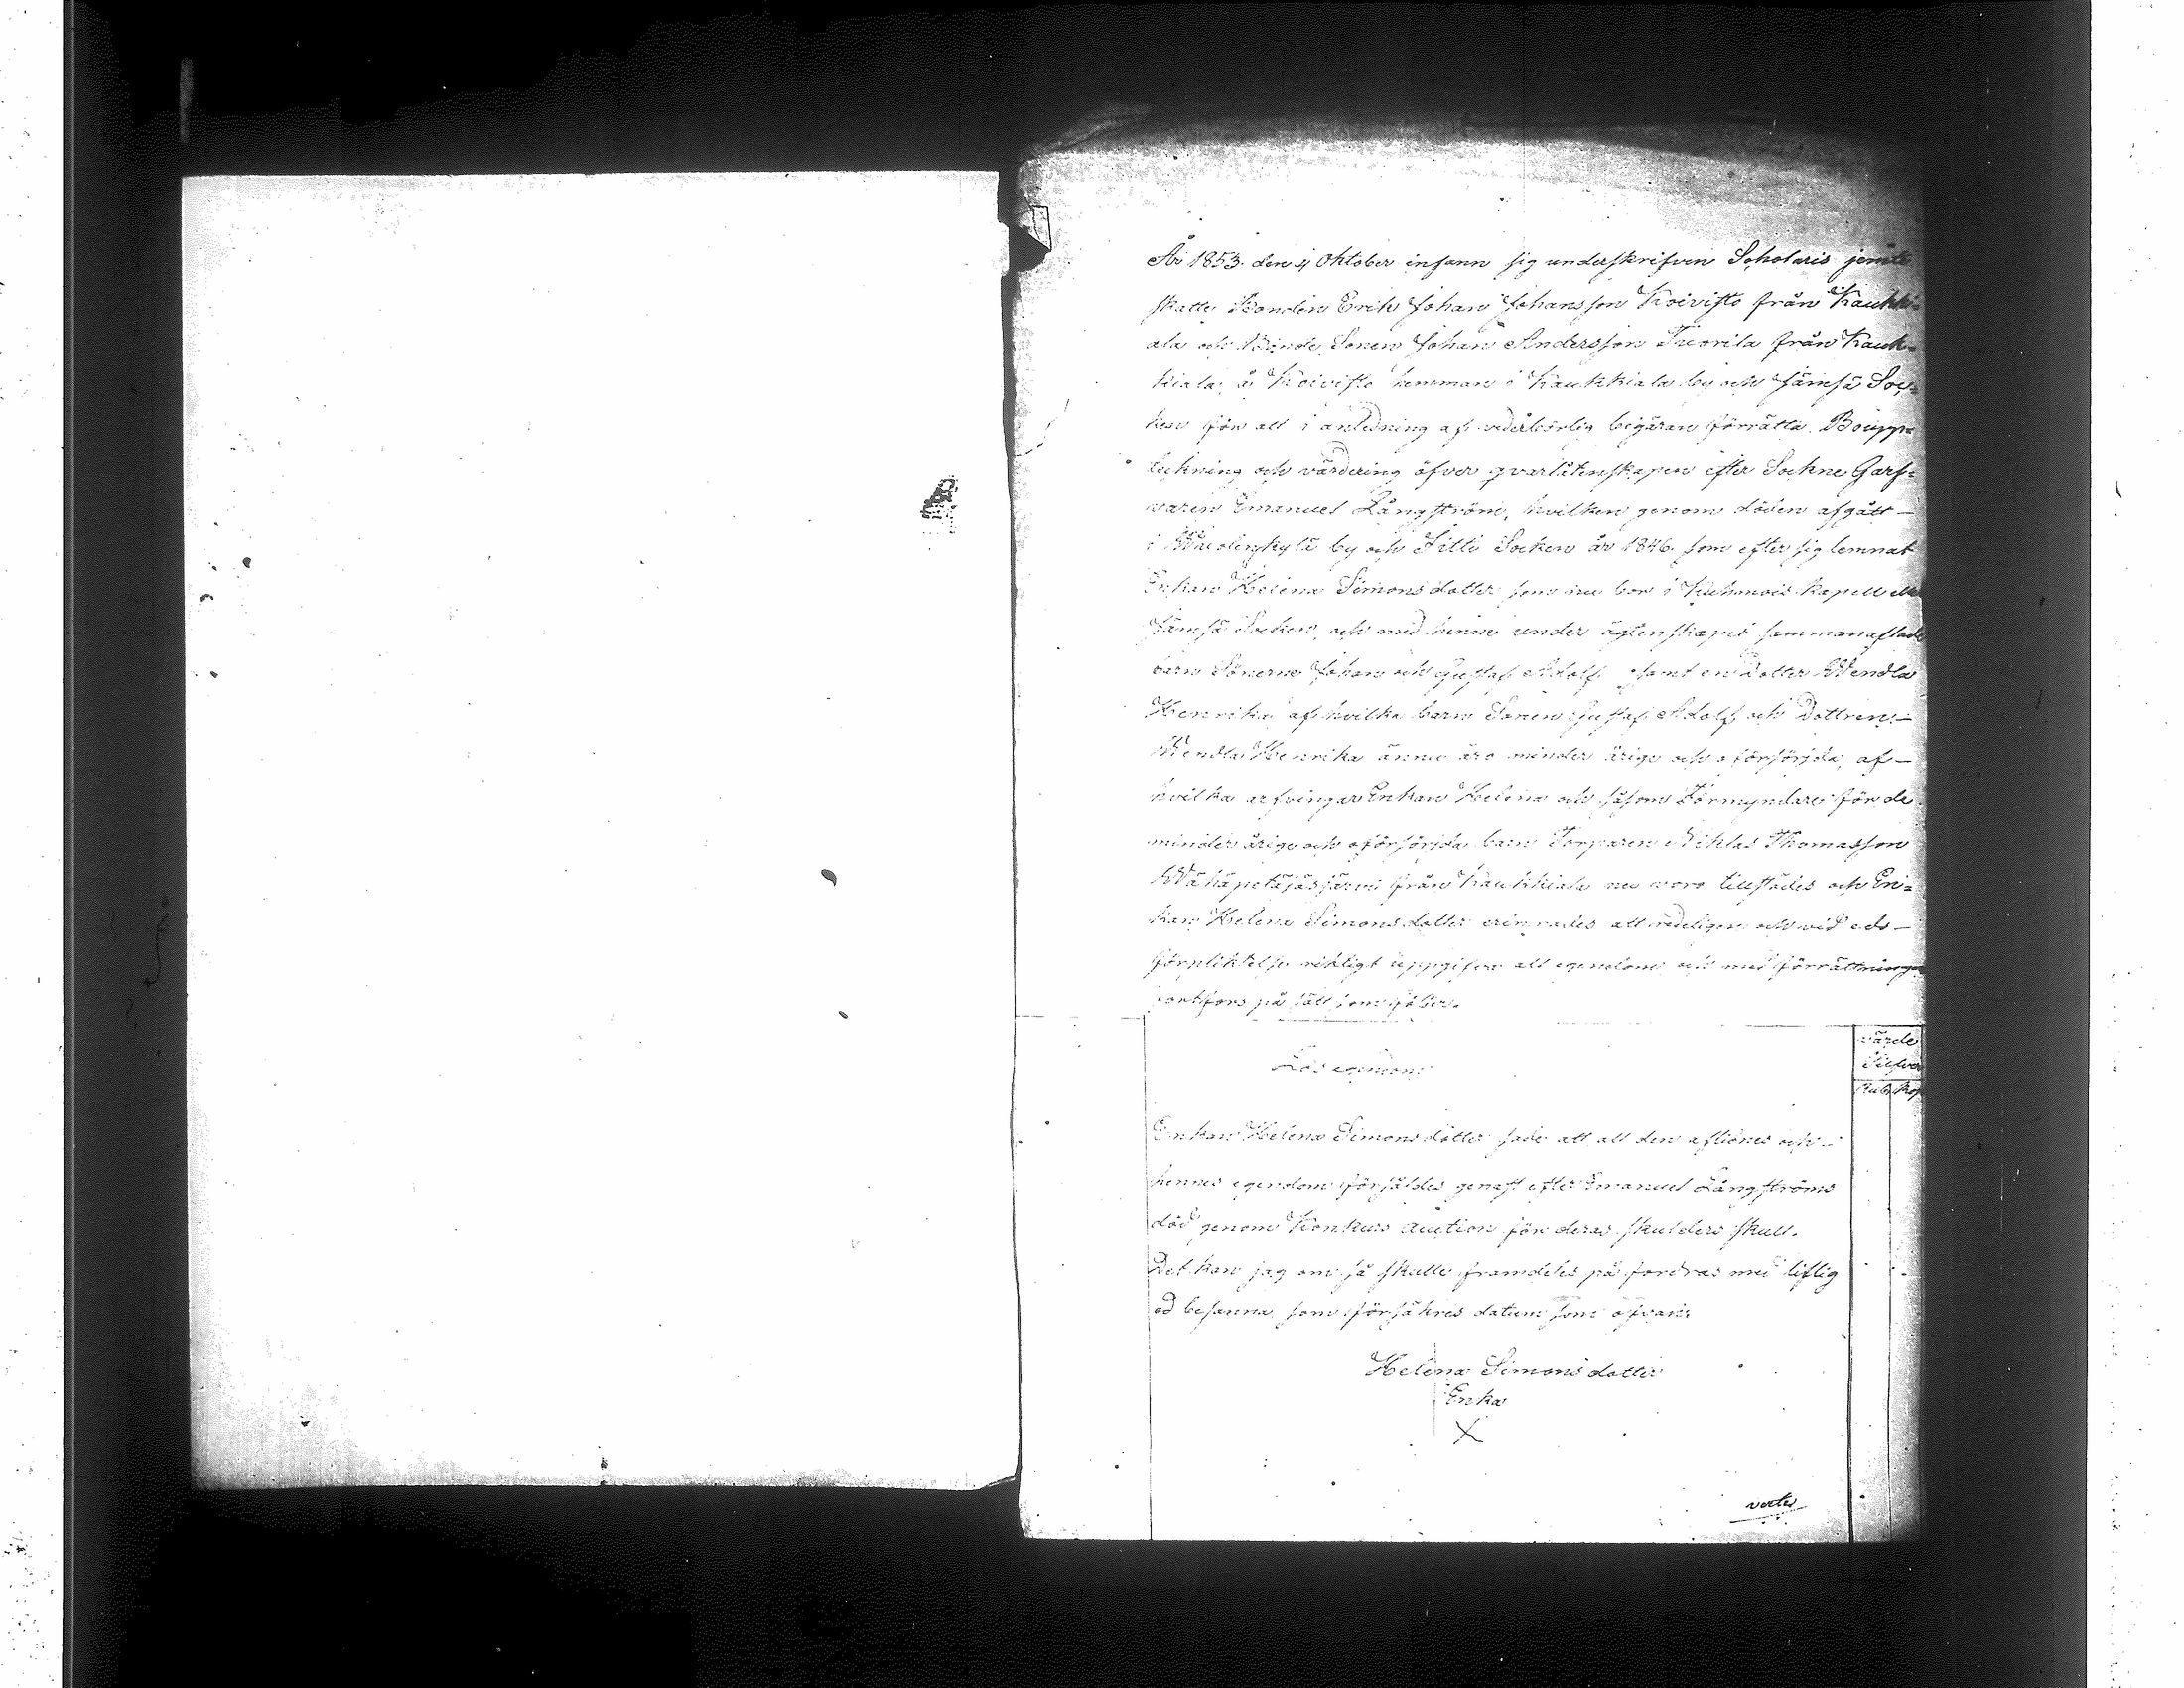 År 1853. den 4 Oktober infann sig underskrifven Scholaris jemte
skatte Bonden Erik Johan Johansson Koivisto från Kaukki-
ala och Bonde Sonen Johan Andersson Tuorila från Kauk-
kiala, å Koivisto hemman i Kaukkiala by och Jämsä Soc-
ken för att i anledning af vederbörlig begäran förrätta Boupp-
teckning och värdering öfver qvarlåtenskapen efter Sockne Garf-
varen Emanuel Långström, hvilken genom döden afgått —
i by och Sitti Socken år 1846. som efter sig lemnat
Enkan Helena Simonsdotter som nu bor i Kuhmois kapell
Jämsä Socken, och med henne under ägtenskapet sammanaflade
barn Sönerne Johan och Gustaf Adolf samt en Dotter Wendla
Henrika af hvilka barn Sonen Gustaf Adolf och Dottren —
Wendla Henrika ännu äro minder årige och oförsörjda, af —
hvilka arfvingar Enkan Helena och såsom Förmyndare för de
minder årige och oförsörjda barn Torparen Niklas Thomasson
Wähäpetäjäsjärvi från Kaukkiala nu voro tillstädes och En-
kan Helena Simonsdotter erinrades att redeligen och vid eds —
förpliktelse riktigt uppgifva all egendom och med förrättningen
fortfors på sätt som följer.
värde
Silfver
Rub. Kop
Lös egendom
Enkan Helena Simonsdotter sade att all den aflidnes och —
hennes egendom försåldes genast efter Emanuel Långströms
död genom Konkurs auction för deras skulders skull.
Det kan jag om så skulle framdeles på fordras med liflig
ed besanna som försäkres datum som ofvan.
Helena Simonsdotter
Enka
X
verte